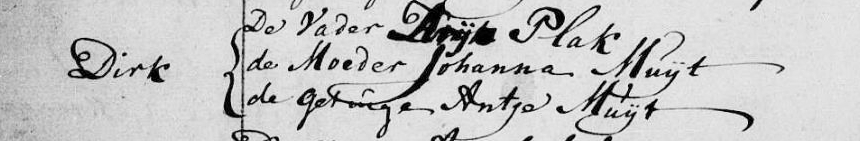 De Vader Dirk Plak
Dirk de Moeder Johanna Muijt
de getuige Antje Muijt